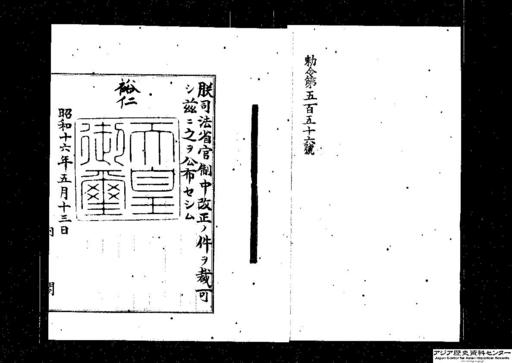 勅令第五百五十六號
朕司法省官制中改正ノ件ヲ裁可
シ茲ニ之ヲ公布セシム
裕仁
天皇
御璽
昭和十六年五月十三日
内閣
アジア歴史資料センター
Japan Center for Asian Historical Records